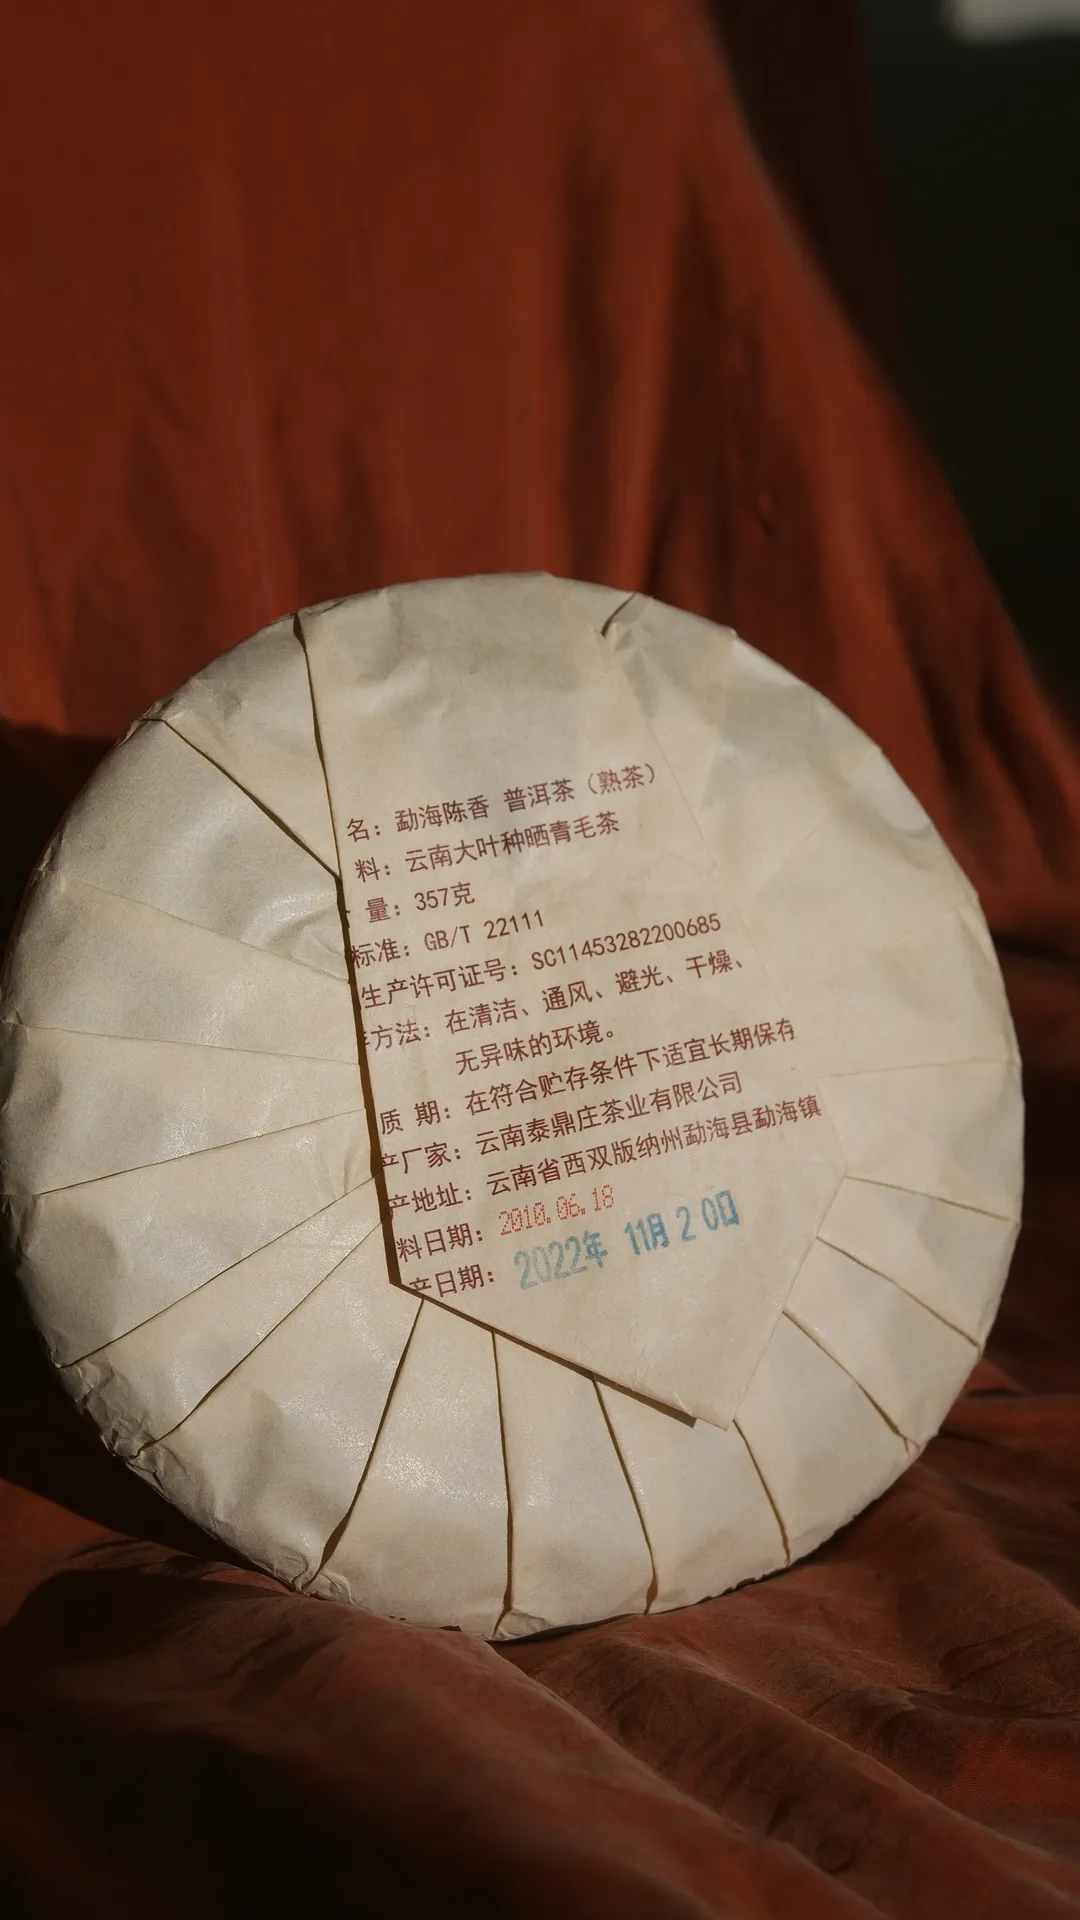 名：勐海陈香 普洱茶（熟茶）
料：云南大叶种晒青毛茶
量：357克
标准：GB/T 22111
生产许可证号：SC11453282200685
方法：在清洁、通风、避光、干燥、
无异味的环境。
质 期：在符合贮存条件下适宜长期保存
产厂家：云南泰鼎庄茶业有限公司
产地址：云南省西双版纳州勐海县勐海镇
料日期：2010.06.18
产日期：2022年 11月20日